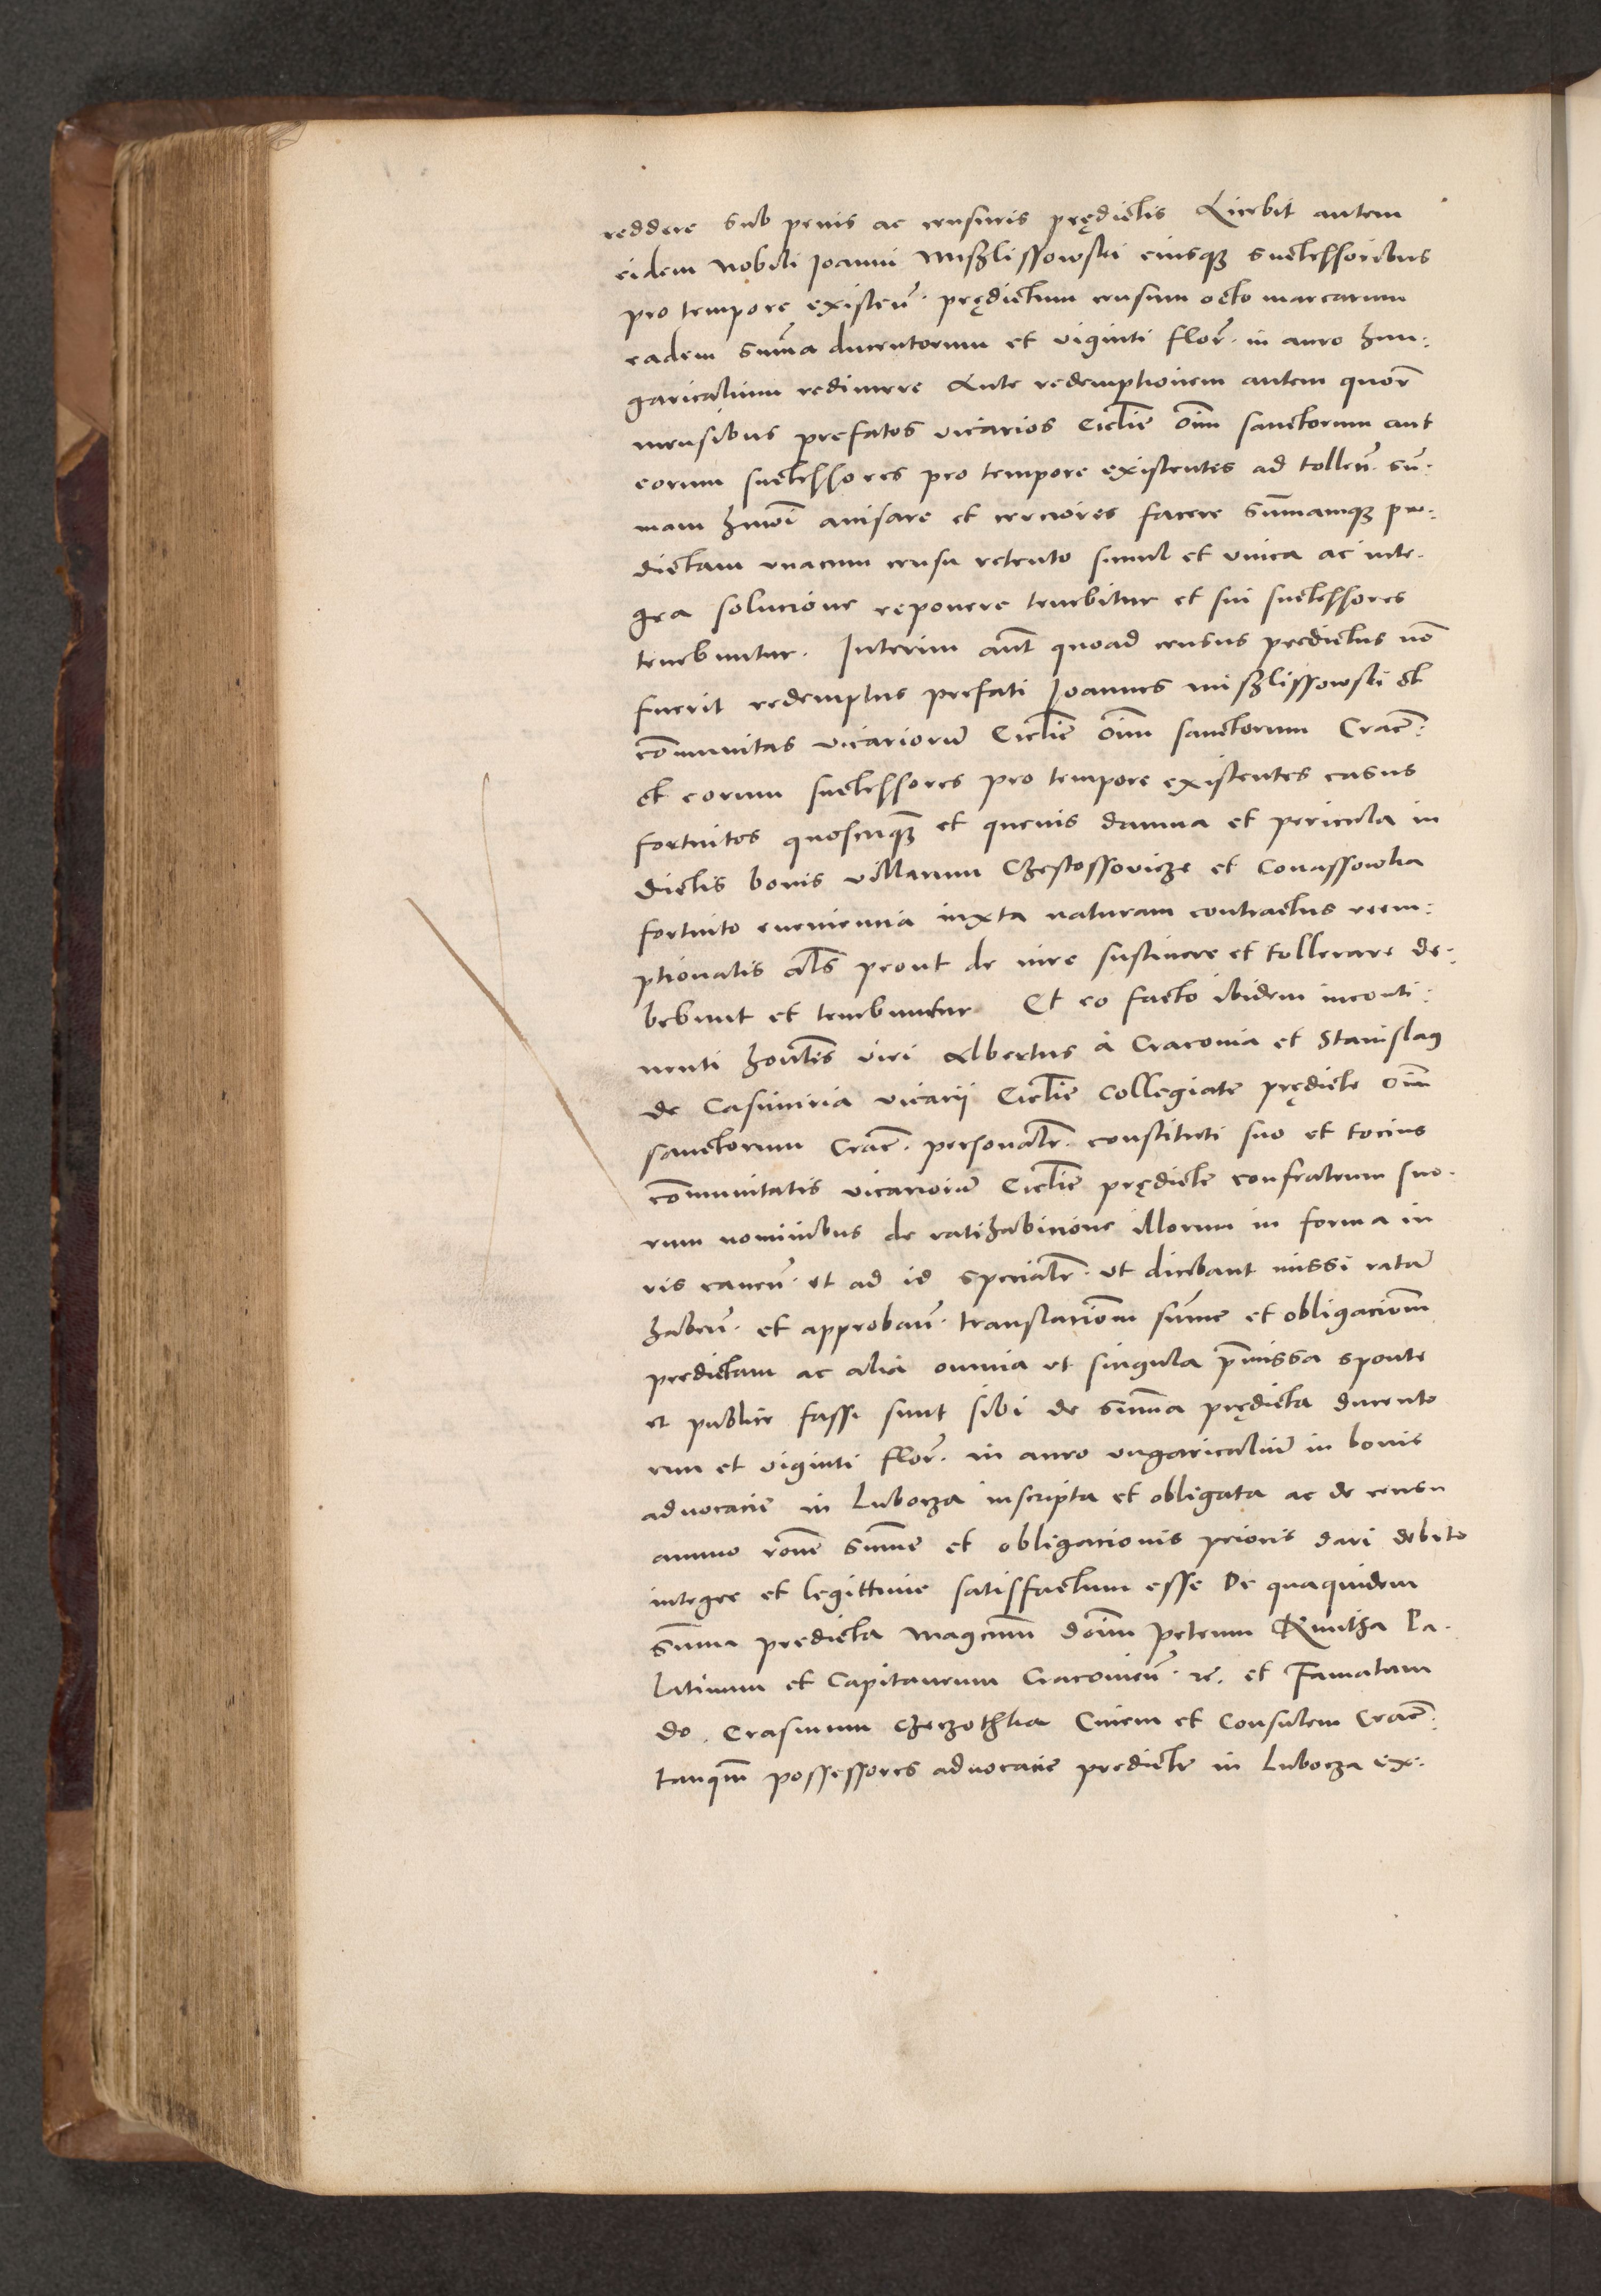 reddere sub penis ac censuris prędictis Licebit autem
eidem Nobili Joanni Mißlissowski eiusq́ȝ successoribus
pro tempore existeñ. prędictum censum octo marcarum
eadem sum̃a ducentorum et viginti flor̃. in auro hun:
garicalium redimere Ante redemptionem autem quor̃
mensibus prefatos vicarios Ecclie oim sanctorum aut
eorum successores pro tempore existentes ad tolleñ. sũ:
mam hmoi avisare et cerciores facere sum̃amqȝ pre:
dictam unacum censu retento simul et unica ac inte:
gra solucione reponere tenebitur et sui successores
tenebuntur. Interim aut̃ quoad census predictus nõ
fuerit redemptus prefati Joannes mißlissowski et
cõmunitas vicariorũ Ecclie oim sanctorum Crac̃:
et eorum successores pro tempore existentes casus
fortuitos quoscunqȝ et quevis damna et pericula in
dictis bonis villarum Czestossovicze et Conassowka
fortuito eveniencia iuxta naturam contractus reem:
ptionalis als̃ prout de iure sustinere et tollerare de:
bebunt et tenebuntur Et eo facto ibidem inconti:
nenti honl̃es viri Albertus à Cracovia et Stanislaus
de Casimiria vicarii Ecclie Collegiate prędicte oim
sanctorum Crac̃. personalr̃. constituti suo et tocius
cõmunitatis vicariorũ Ecclie prędicte confratrum suo:
rum nominibus de ratihabicione illorum in forma iu
ris caveñ. et ad id specialr̃. ut dicebant missi ratã
habeñ. et approbañ. translacionm̃ sum̃e et obligacionm̃
predictam ac alia omnia et singula p̃missa sponte
et publice fassi sunt sibi de summa prędicta ducento
rum et viginti flor̃. in auro ungaricaliũ in bonis
advocacie in Luborza inscripta et obligata ac de censu
annuo rone sum̃e et obligacionis prioris dari debito
integre et legittime satisfactum esse De quaquidem
sum̃a predicta Magcum̃ doim̃ petrum Kmitha Pa:
latinum et Capitaneum Cracovieñ. zc̃. et Famatum
do. Erasmum Czeczothka Civem et Consulem Crac̃:
tanqm̃ possessores advocacie predicte in Luborza ex: